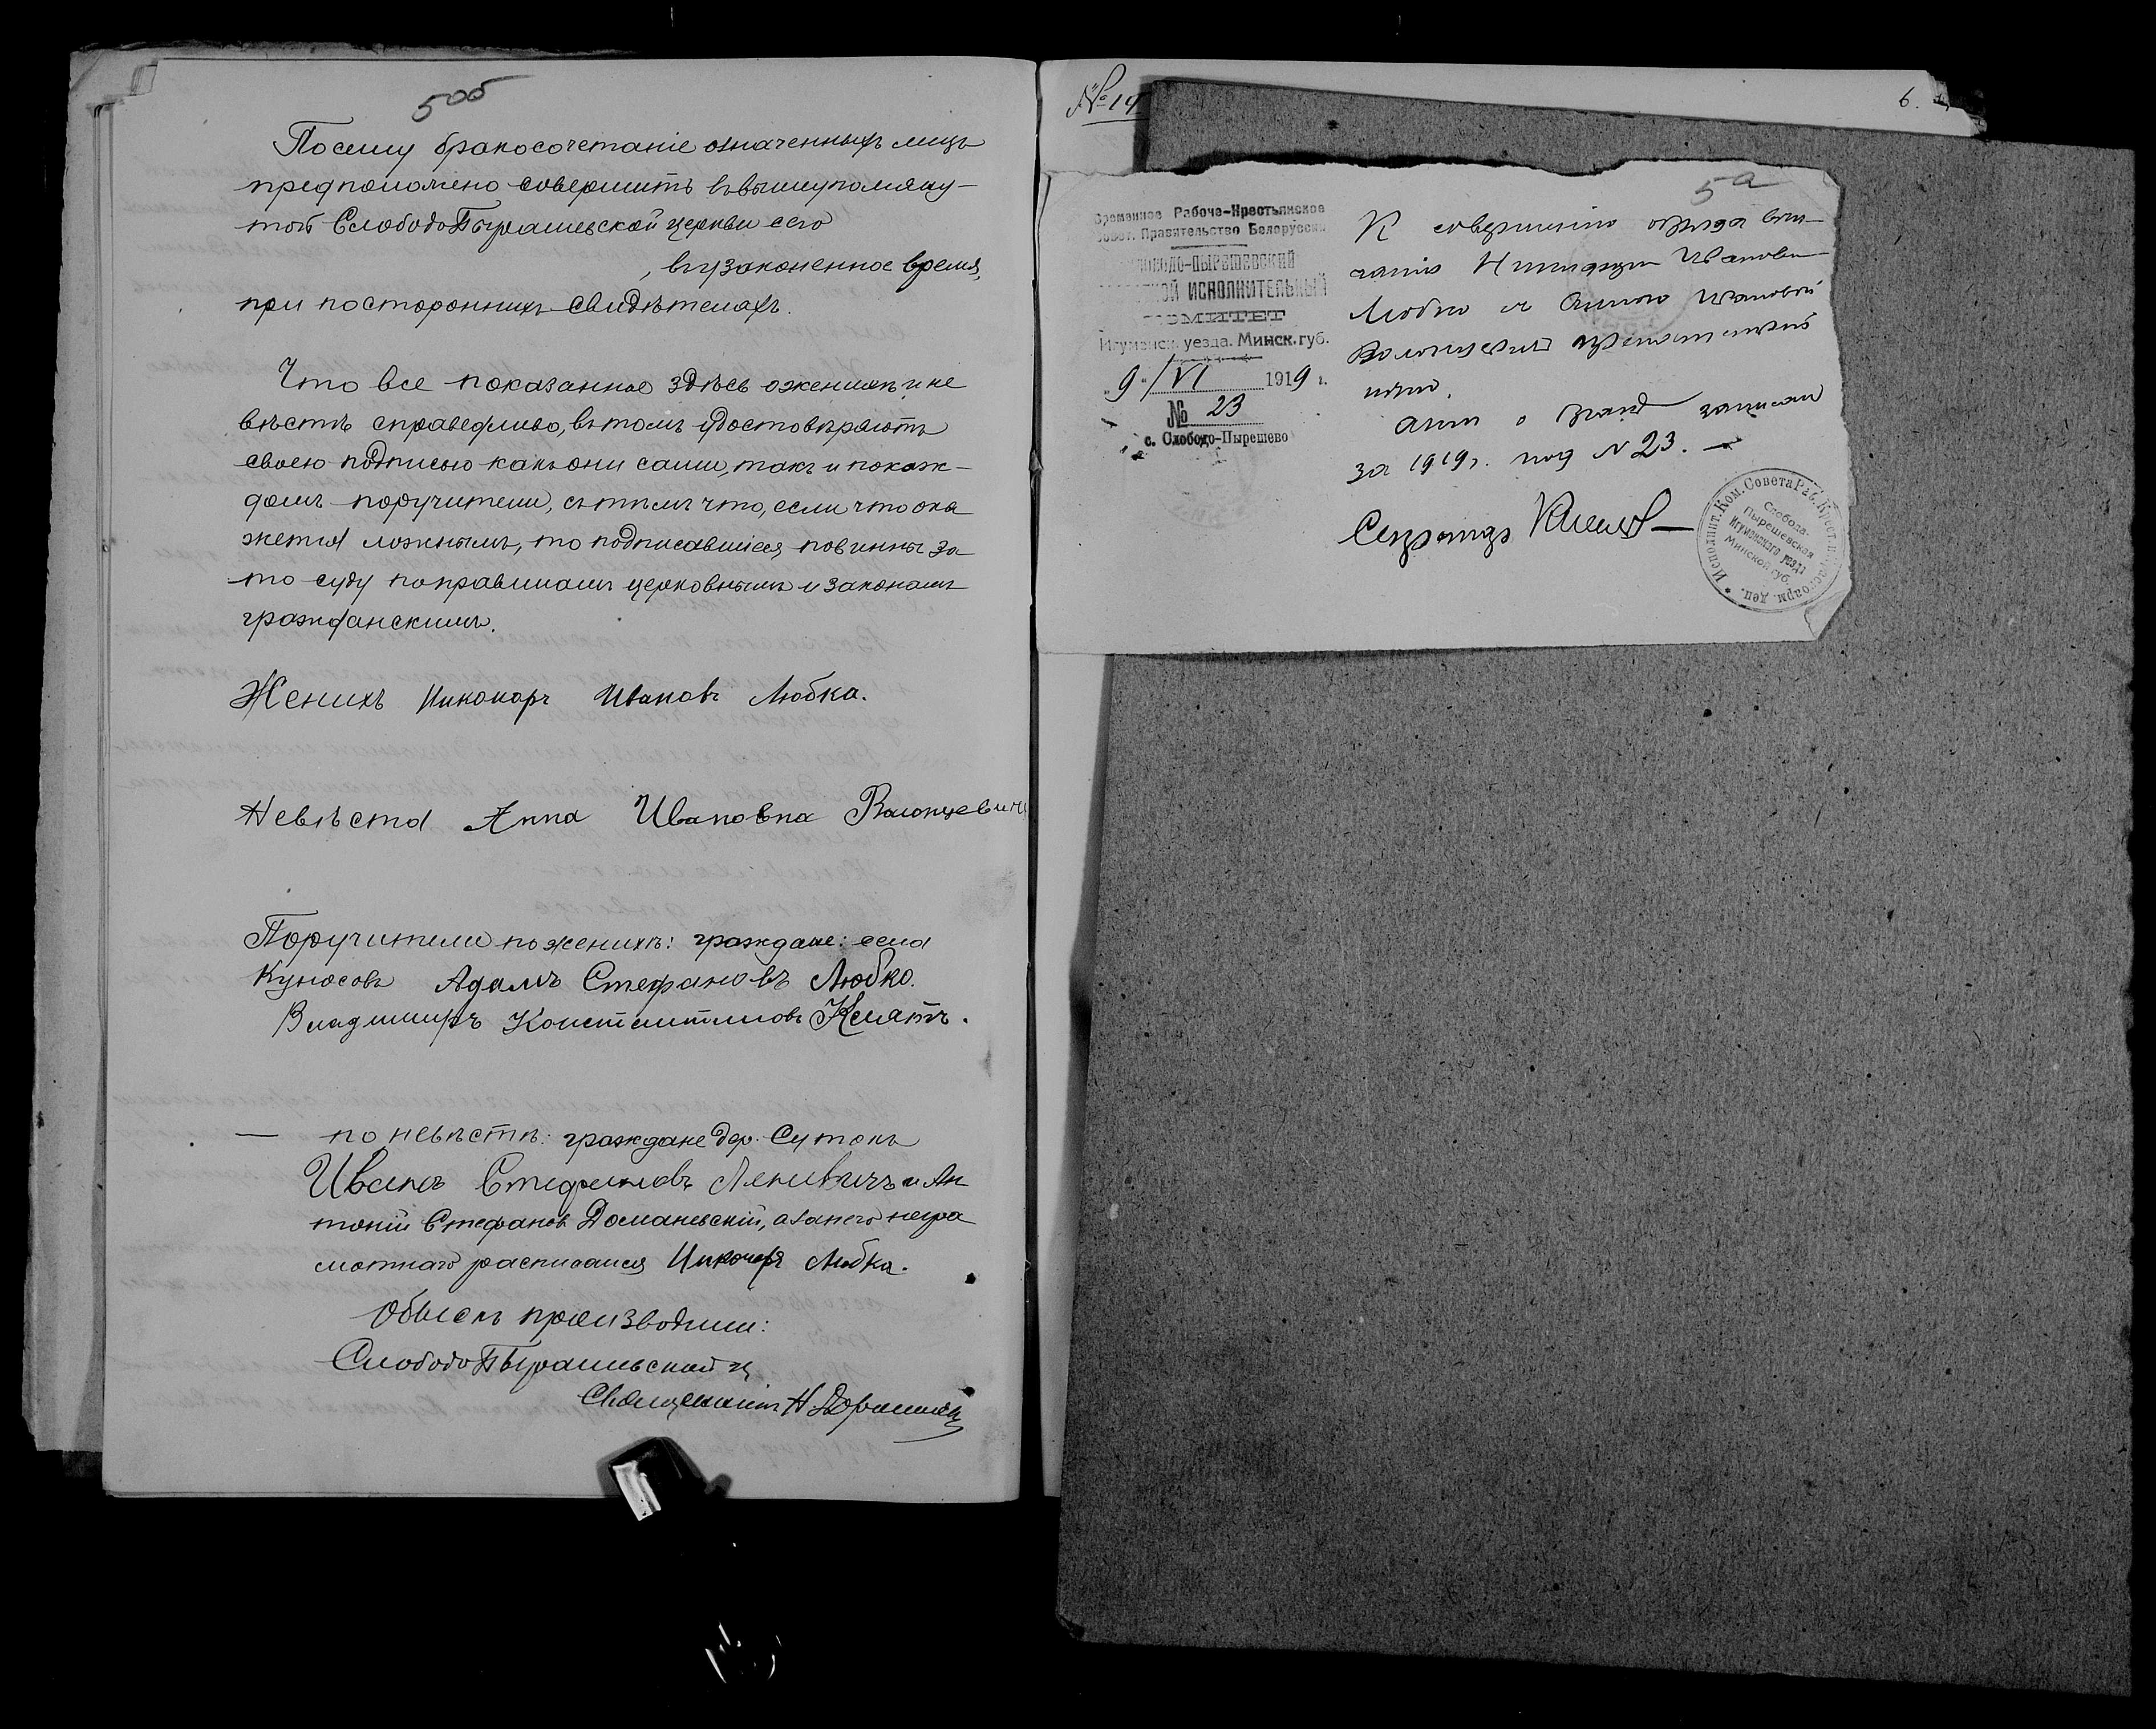 5об
Посему бракосочетаніе означенныхъ лицъ
предположено совершить въ вышеупомяну-
той СлободоПырашевской церкви сего
, въ узаконенное время,
при постороннихъ свидѣтеляхъ.
Что все показанное здѣсь о женихѣ и не
вѣстѣ справедливо, въ томъ удостовѣряютъ
своею подписью какъ они сами, такъ и по каж-
домъ поручители, съ тѣмъ что, если что ока
жется ложнымъ, то подписавшіеся повинны за
то суду по правиламъ церковнымъ и законамъ
гражданскимъ.
Женихъ Никоноръ Ивановъ Любка.
Невѣста Анна Ивановна
Поручители по женихѣ: граждане: села
Адамъ Стефановъ Любко.
Владимиръ Константиновъ
— по невѣстѣ: граждане дер. Сутокъ
Иванъ Стефановъ Леневичъ и Ан
тоній Стефановъ Доманевскій, а за него негра
мотнаго расписался Никоноръ Любка.
Обыскъ производили:
СлободоПырашевской ц
Священникъ Н.
№19
6.
5а
Временное Рабоче-Крестьянское
Совет. Правительство Белоруссии
СЛОБОДО-ПЫРЕШЕВСКИЙ
ИСПОЛНИТЕЛЬНЫЙ
КОМИТЕТ
Игуменск. уезда. Минск. губ.
„9“/VI 1919 г.
№ 23
с. Слободо-Пырешево
К совершению обряда вен-
чания Ивановича
Любко и Анною Ивановой
препятствий
нет.
Акт о браке записан
за 1919 г. под N 23. —
Секретарь
Исполнит. Ком. Совета Раб. Крест. и Красноарм. деп.
Слобода-
Пырешевская
Игуменского уезда
Минской губ.